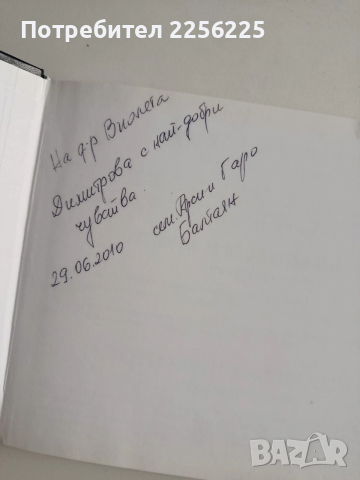 Потребител 2256225
На д-р Виолета
Димитрова с най-добри
чувства.
29.06.2010 сем. Арси и Гаро
Балтаян
BAZAR
bg